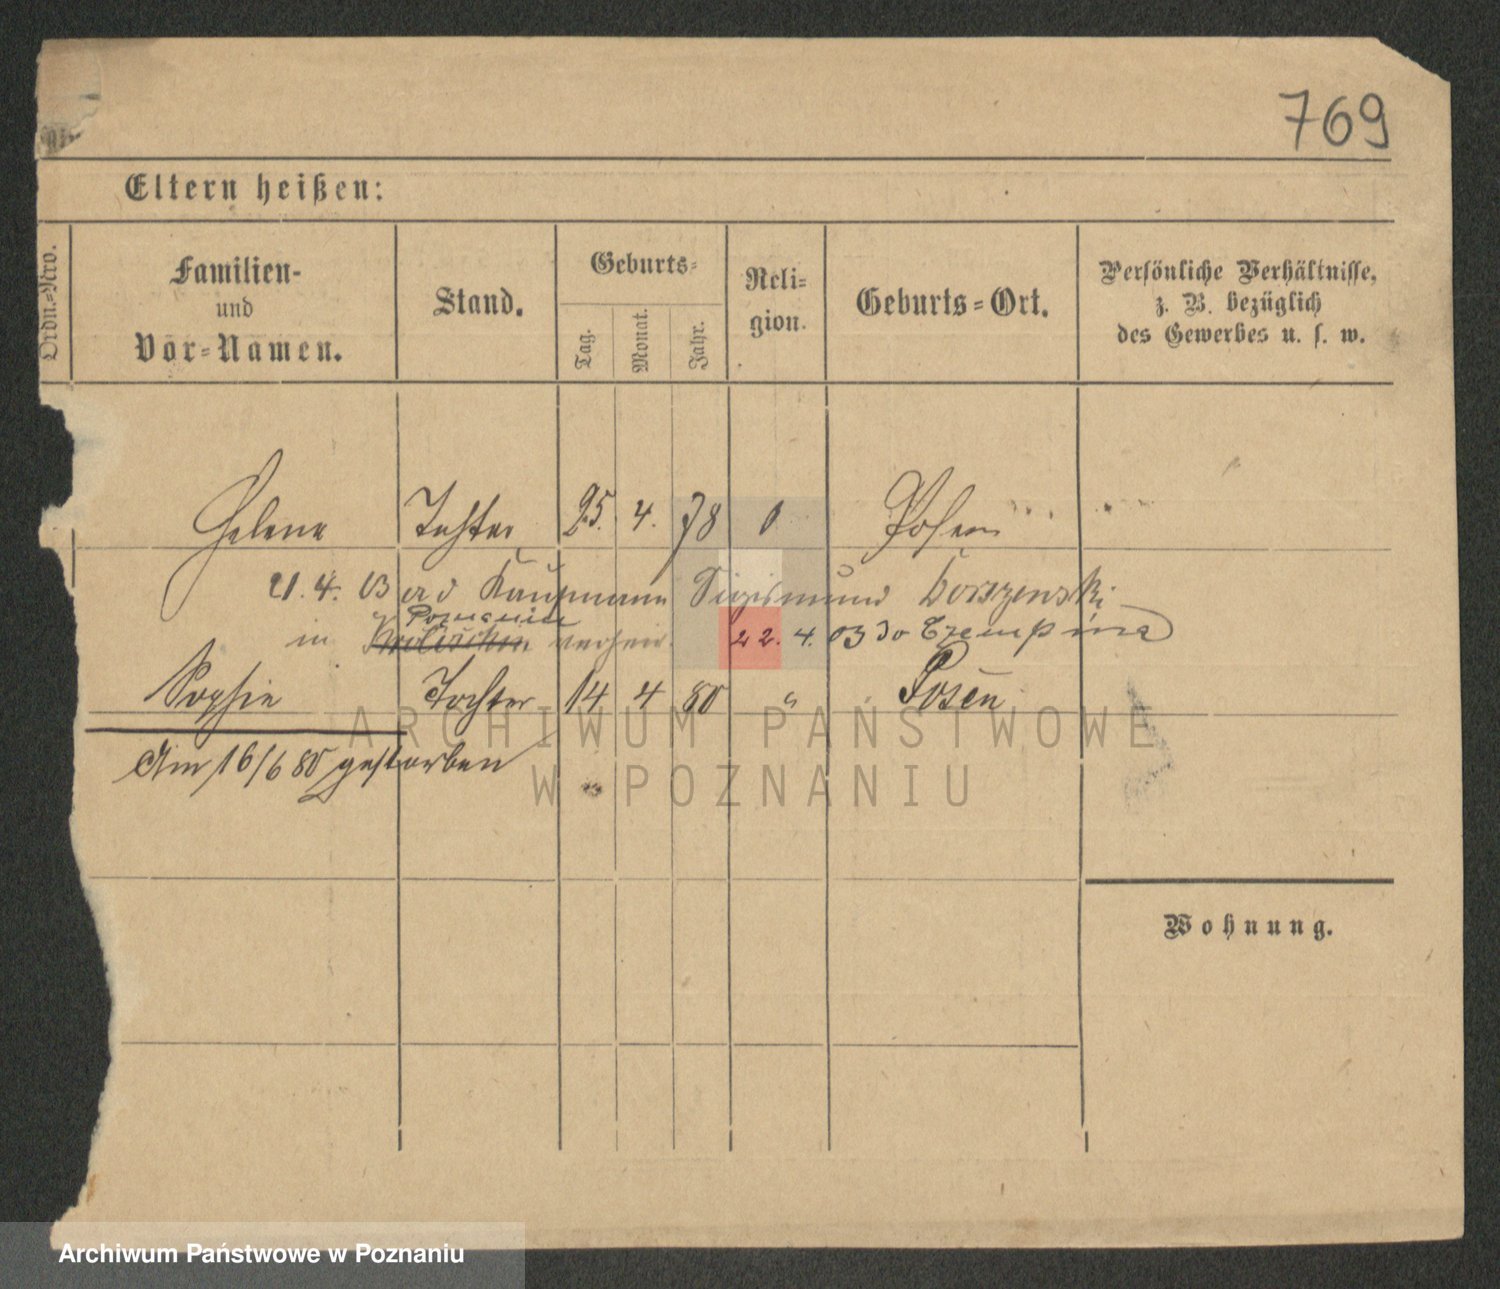 769
Eltern heißen:
Ordn.-Nro.
Familien-
und
Vor-Namen.
Stand.
Geburts-
Tag.
Monat.
Jahr.
Reli-
gion.
Geburts-Ort.
Persönliche Verhältnisse,
z. B. bezüglich
des Gewerbes u. s. w.
Helene Tochter 25. 4. 78 Posen
21. 4. 03 Kaufmann Sigismund
in 22. 4. 03
Sophie Tochter 14 4 80 " Posen
Am 16/6 80 gestorben
ARCHIWUM PAŃSTWOWE
W POZNANIU
Wohnung.
Archiwum Państwowe w Poznaniu